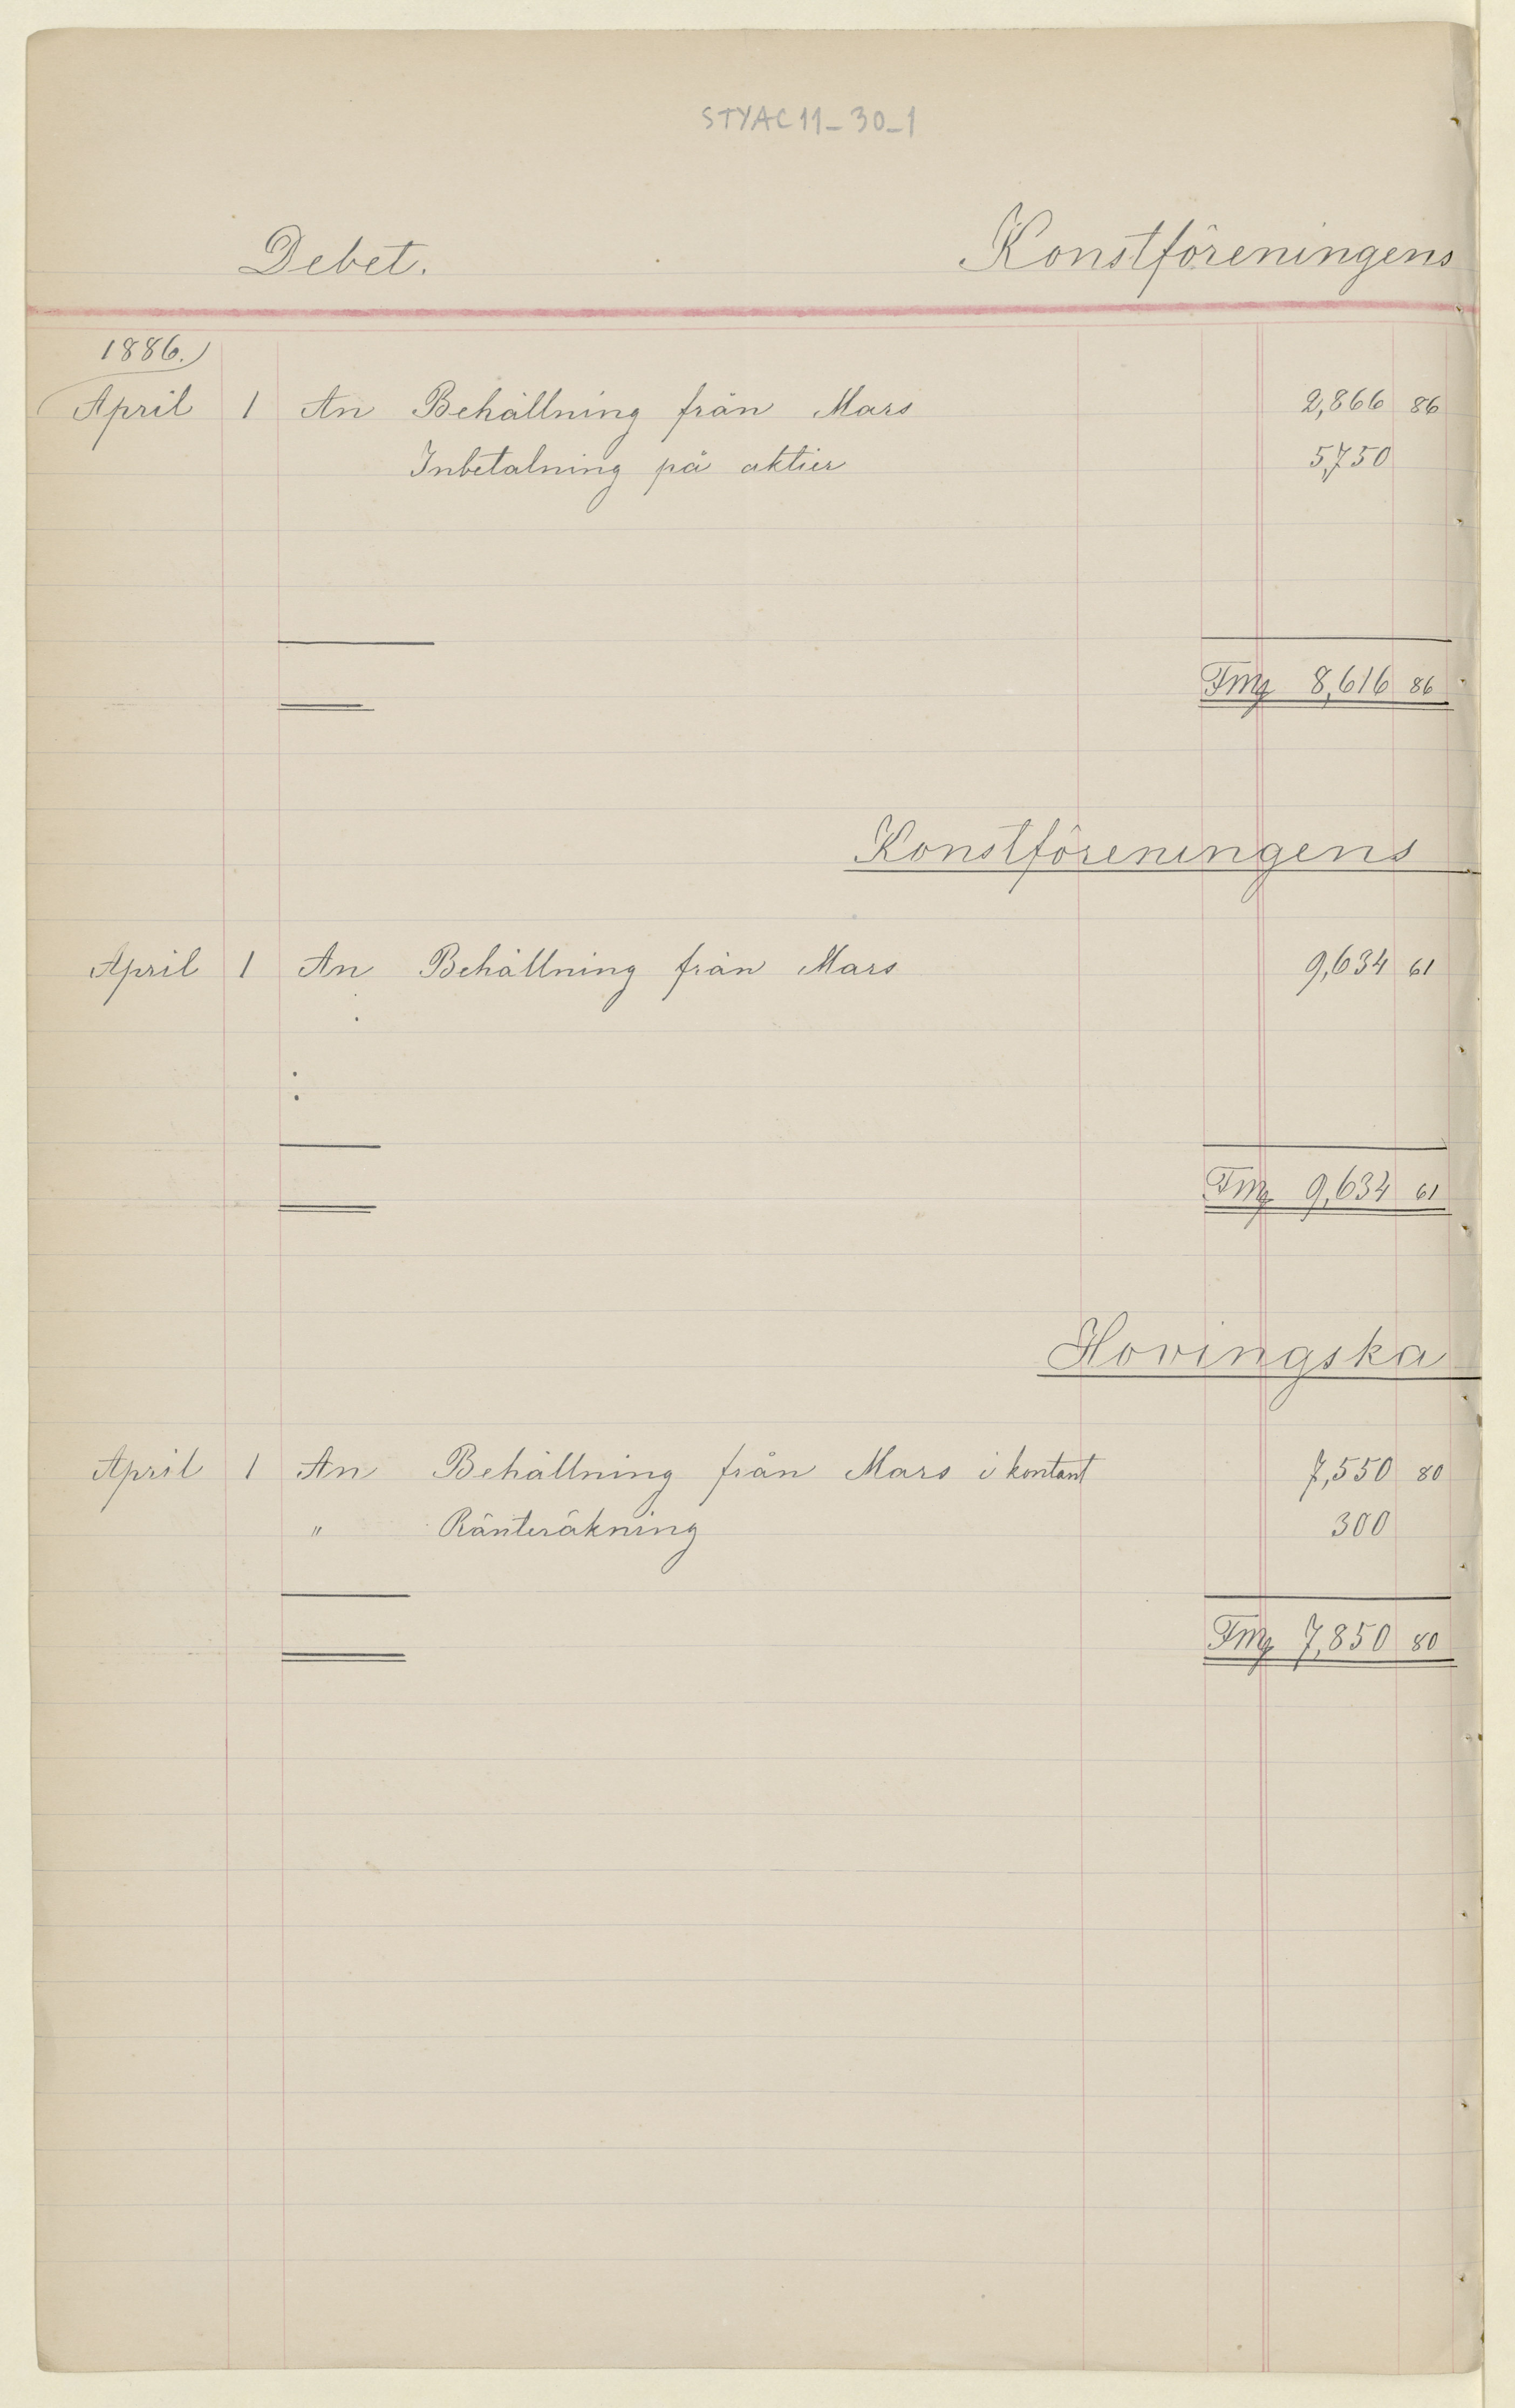 STYAC11_30_1
Debet. Konstföreningens
1886.
April 1 An Behållning från Mars 2,866 86
Inbetalning på aktier 5,750
Fmg 8,616 86
Konstföreningens
April 1 An Behållning från Mars 9,634 61
Fmg 9,634 61
Hovingska
April 1 An Behållning från Mars i kontant 7,550 80
" Ränteräkning 300
Fmg 7,850 80